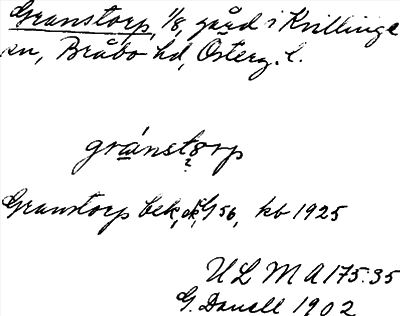 Granstorp, 1/8, gård i Kvillinge
sn, Bråbo hd, Österg. l.
gránstorp
Granstorp bek, ek G 56, kb 1925
ULMA 175:35
G. Danell 1902